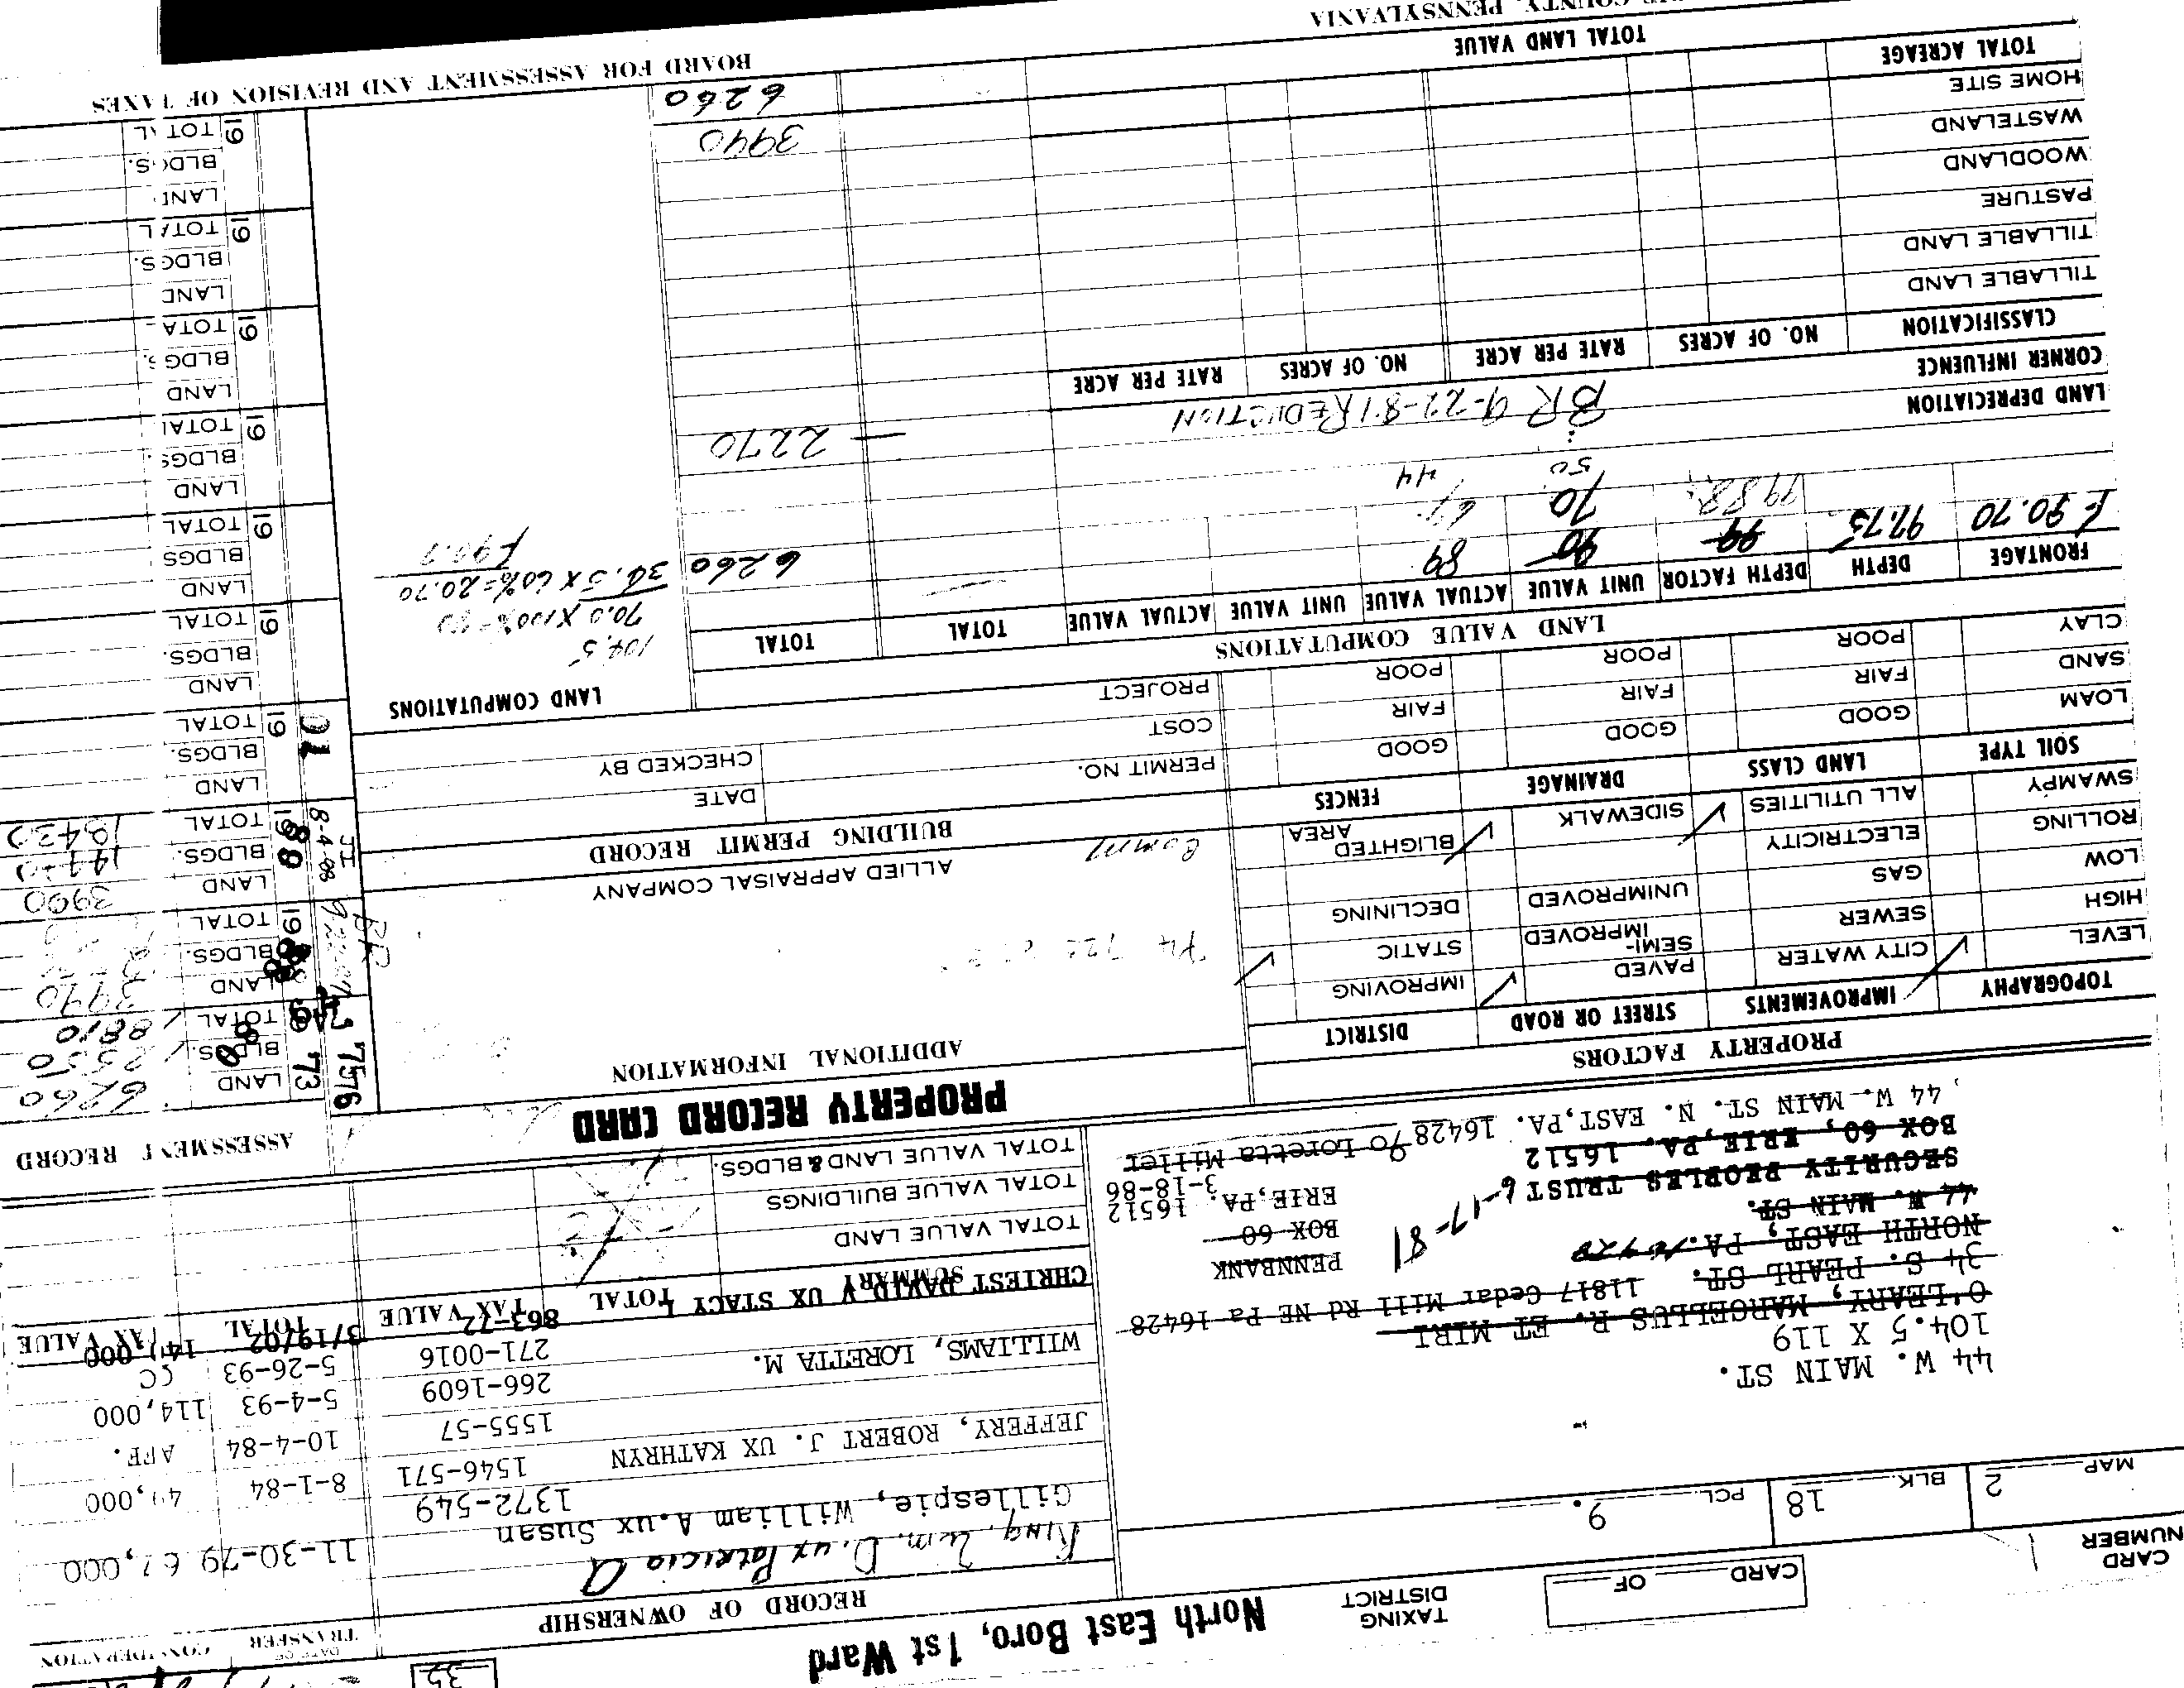 35
North East Boro, 1st Ward
TAXING DISTRICT
CARD OF
CARD NUMBER
MAP 2 BLK. 18 PCL. 9.
44 W. MAIN ST.
104.5 X 119
O'LEARY, MARCELLUS R. ET MIRI
34 S. PEARL ST. 11817 Cedar Mill Rd NE Pa 16428
NORTH EAST, PA. 16428
44 W. MAIN ST.
SECURITY PEOPLES TRUST 6-17-81
BOX 60, ERIE, PA. 16512
PENNBANK
BOX 60
ERIE, PA. 16512
3-18-86
% Loretta Miller
44 W. MAIN ST. N. EAST, PA. 16428
RECORD OF OWNERSHIP
DATE OF TRANSFER
CONSIDERATION
King, Wm. D. ux Patricia A
Gillespie, William A. ux Susan 1372-549 11-30-79
1546-571 8-1-84
JEFFERY, ROBERT J. UX KATHRYN 1555-57 10-4-84 AFF.
266-1609 5-4-93 114,000
WILLIAMS, LORETTA M. 271-0016 5-26-93
CHRIEST DAVID V UX STACY L 863-72 3/19/02
SUMMARY TOTAL TAX VALUE TOTAL TAX VALUE
TOTAL VALUE LAND
TOTAL VALUE BUILDINGS
TOTAL VALUE LAND & BLDGS.
PROPERTY RECORD CARD
ASSESSMENT RECORD
PROPERTY FACTORS
TOPOGRAPHY IMPROVEMENTS STREET OR ROAD DISTRICT
LEVEL CITY WATER PAVED IMPROVING
HIGH SEWER SEMI-IMPROVED STATIC
LOW GAS UNIMPROVED DECLINING
ROLLING ELECTRICITY
SWAMPY ALL UTILITIES SIDEWALK BLIGHTED AREA
Comm
SOIL TYPE LAND CLASS DRAINAGE FENCES
LOAM GOOD GOOD GOOD
SAND FAIR FAIR FAIR
CLAY POOR POOR POOR
ADDITIONAL INFORMATION
ALLIED APPRAISAL COMPANY
BUILDING PERMIT RECORD
DATE
PERMIT NO. CHECKED BY
COST
PROJECT
LAND COMPUTATIONS
104.5
70.0 X 100% =
34.5 X 60% = 20.70
LAND VALUE COMPUTATIONS
FRONTAGE DEPTH DEPTH FACTOR UNIT VALUE ACTUAL VALUE UNIT VALUE ACTUAL VALUE TOTAL TOTAL
90.70 97.75 99 90 89 6260
70
50 44
2270
LAND DEPRECIATION
BR 9-22-81 REDUCTION
CORNER INFLUENCE
CLASSIFICATION NO. OF ACRES RATE PER ACRE NO. OF ACRES RATE PER ACRE
TILLABLE LAND
TILLABLE LAND
PASTURE
WOODLAND
WASTELAND
HOME SITE 3990
TOTAL ACREAGE TOTAL LAND VALUE 6260
7576
19 73 LAND 6260
BLDGS. 2550
TOTAL 8810
BR
19 LAND 3990
BLDGS.
TOTAL
JI
8-4-88
1988 LAND 3990
BLDGS.
TOTAL
01
19 LAND
BLDGS.
TOTAL
19 LAND
BLDGS.
TOTAL
19 LAND
BLDGS
TOTAL
19 LAND
BLDGS.
TOTAL
19 LAND
BLDGS.
TOTAL
19 LAND
BLDGS.
TOTAL
19 LAND
BLDGS.
TOTAL
COUNTY, PENNSYLVANIA
BOARD FOR ASSESSMENT AND REVISION OF TAXES